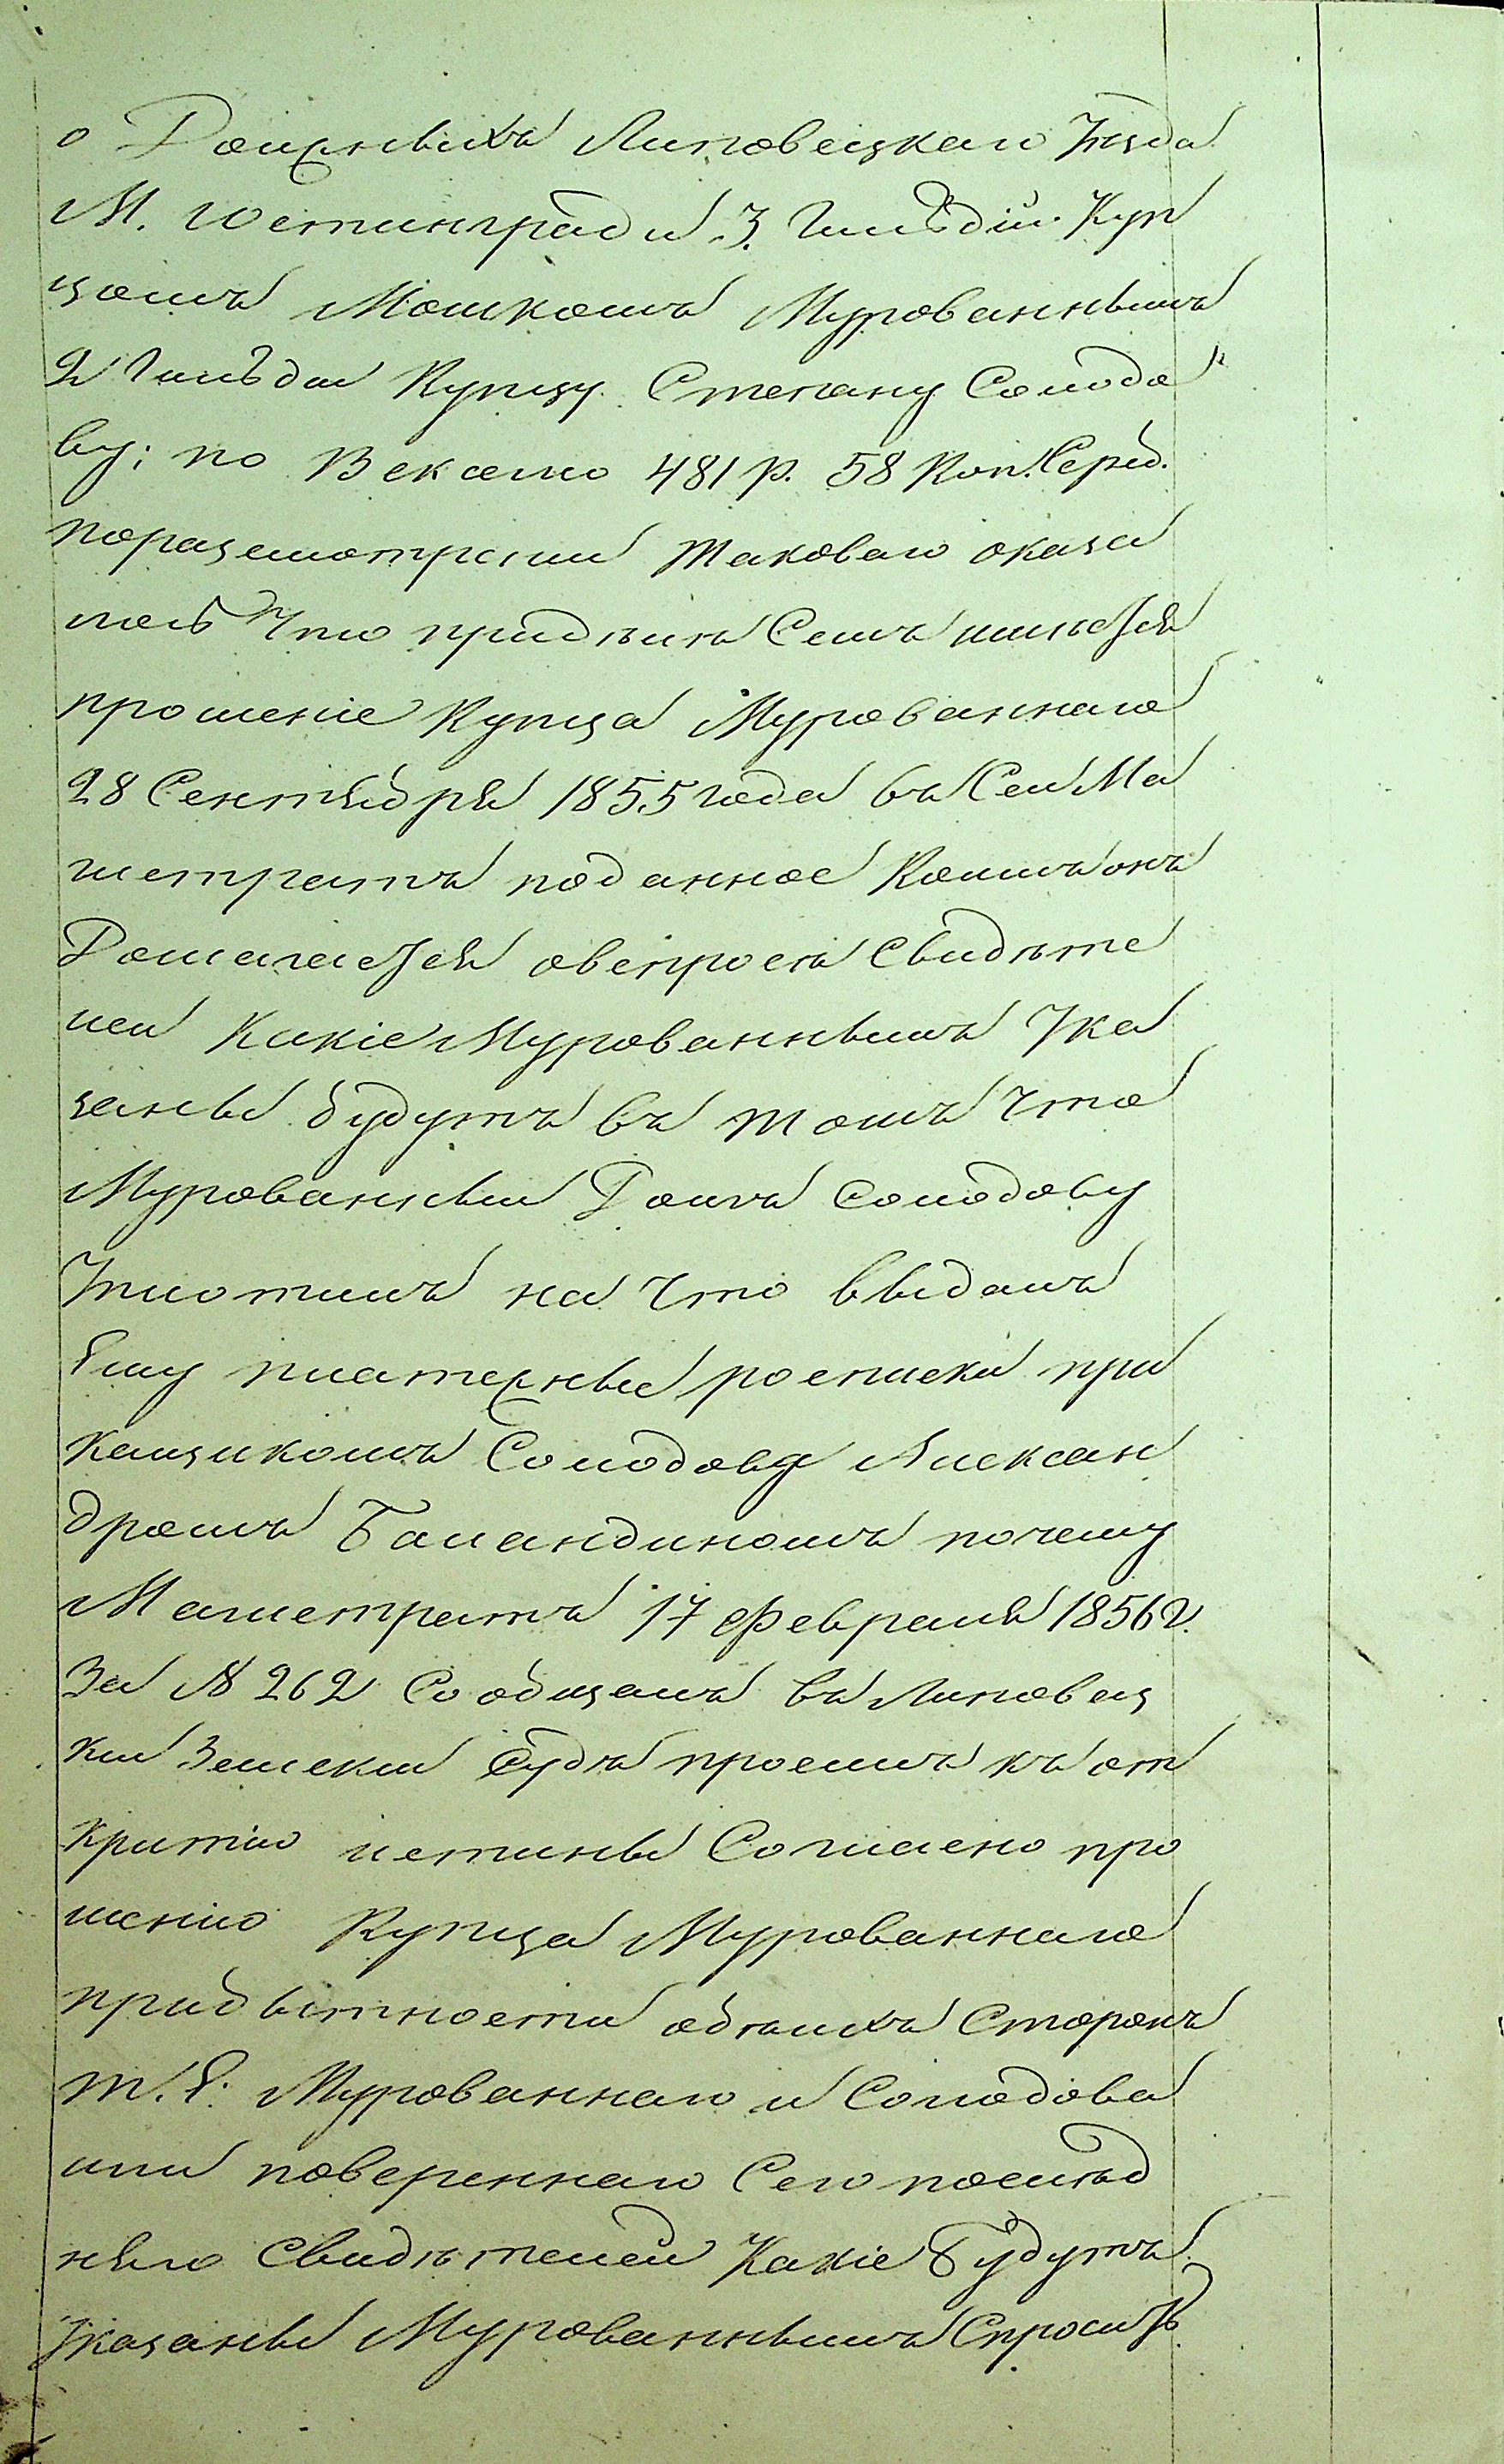 о Должныхъ Липовецкаго Уѣзда
М. Юстинград и 3. Гильдіи Куп
цомъ Мошкомъ Мурованнымъ
2 Гильдіи Купцу Степану Солодо
ву; по Векселю 481 р. 58 Коп. Сереб.
поразсмотреніи таковаго оказа
лось Что придѣлѣ Семъ имѣется
прошеніе Купца Мурованнаго
28 Сентября 1855 года въ Сей Ма
гистратъ поданное Коимъ онъ
Домагается овспросѣ Свидѣте
лей Какіе Мурованнымъ Ука
заны будутъ въ томъ что
Мурованный Долгъ Солодову
Уплотилъ на что выдалъ
Ему платежные росписки при
кащикомъ Солодова Алексан
дромъ Баландиномъ почему
Магистратъ 17 Февраля 1856 г.
За № 262 Сообщалъ въ Липовец
кий Земский Судъ просилъ къ от
критію истины Согласно про
шенію Купца Мурованнаго
прибытности обѣихъ Сторонъ
т. Е. Мурованнаго и Солодова
или повереннаго Сего послѣд
няго Свидѣтелей Какіе Будутъ
Указаны Мурованнымъ Спросить